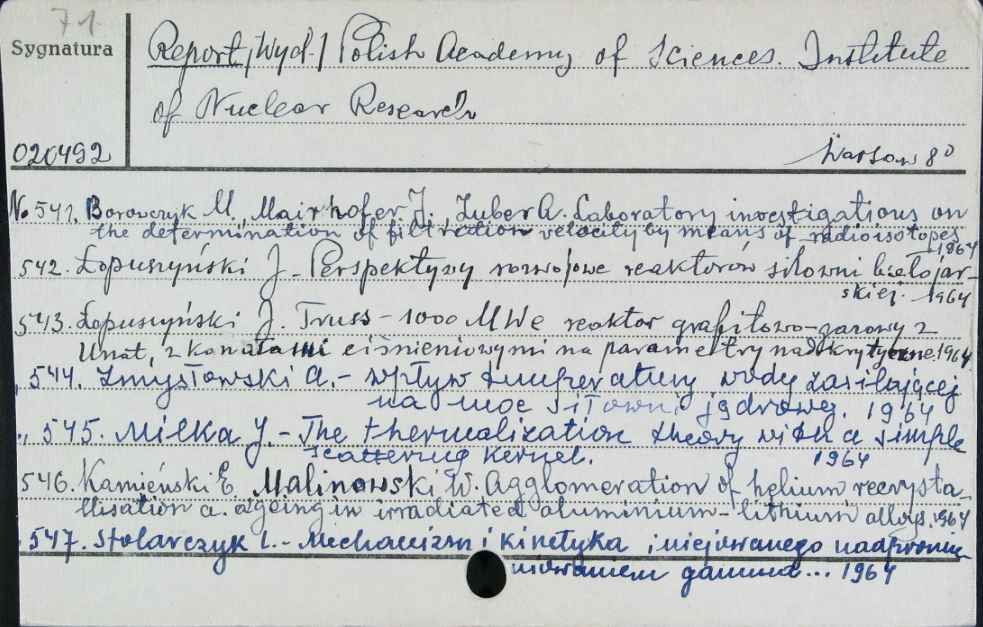 71
Sygnatura
Report /Wyd./ Polish Academy of Sciences. Institute
of Nuclear Research
020492
Warsaw 8°
No 541. Borowczyk M., Mairhofer J., Zuber A. Laboratory investigations on
the determination of filtration velocity by means of radioisotopes
1964
542. Łopuszyński J. Perspektywy rozwojowe reaktorów siłowni biełojar-
skiej. 1964
543. Łopuszyński J. Truss - 1000 MWe reaktor grafitowo-parowy z
Unat, z kanałami ciśnieniowymi na parametry nadkrytyczne. 1964
544. Zmysłowski A. - Wpływ temperatury wody zasilającej
na moc siłowni jądrowej. 1964
545. Milka J. - The thermalization theory with a simple
scattering kernel. 1964
546. Kamieński E. Malinowski W. Agglomeration of helium recrysta-
llisation a. ageing in irradiated aluminium-lithium alloys. 1964
547. Stolarczyk L. - Mechanizm i kinetyka inicjowanego nadpromie-
niowaniem gamma... 1964